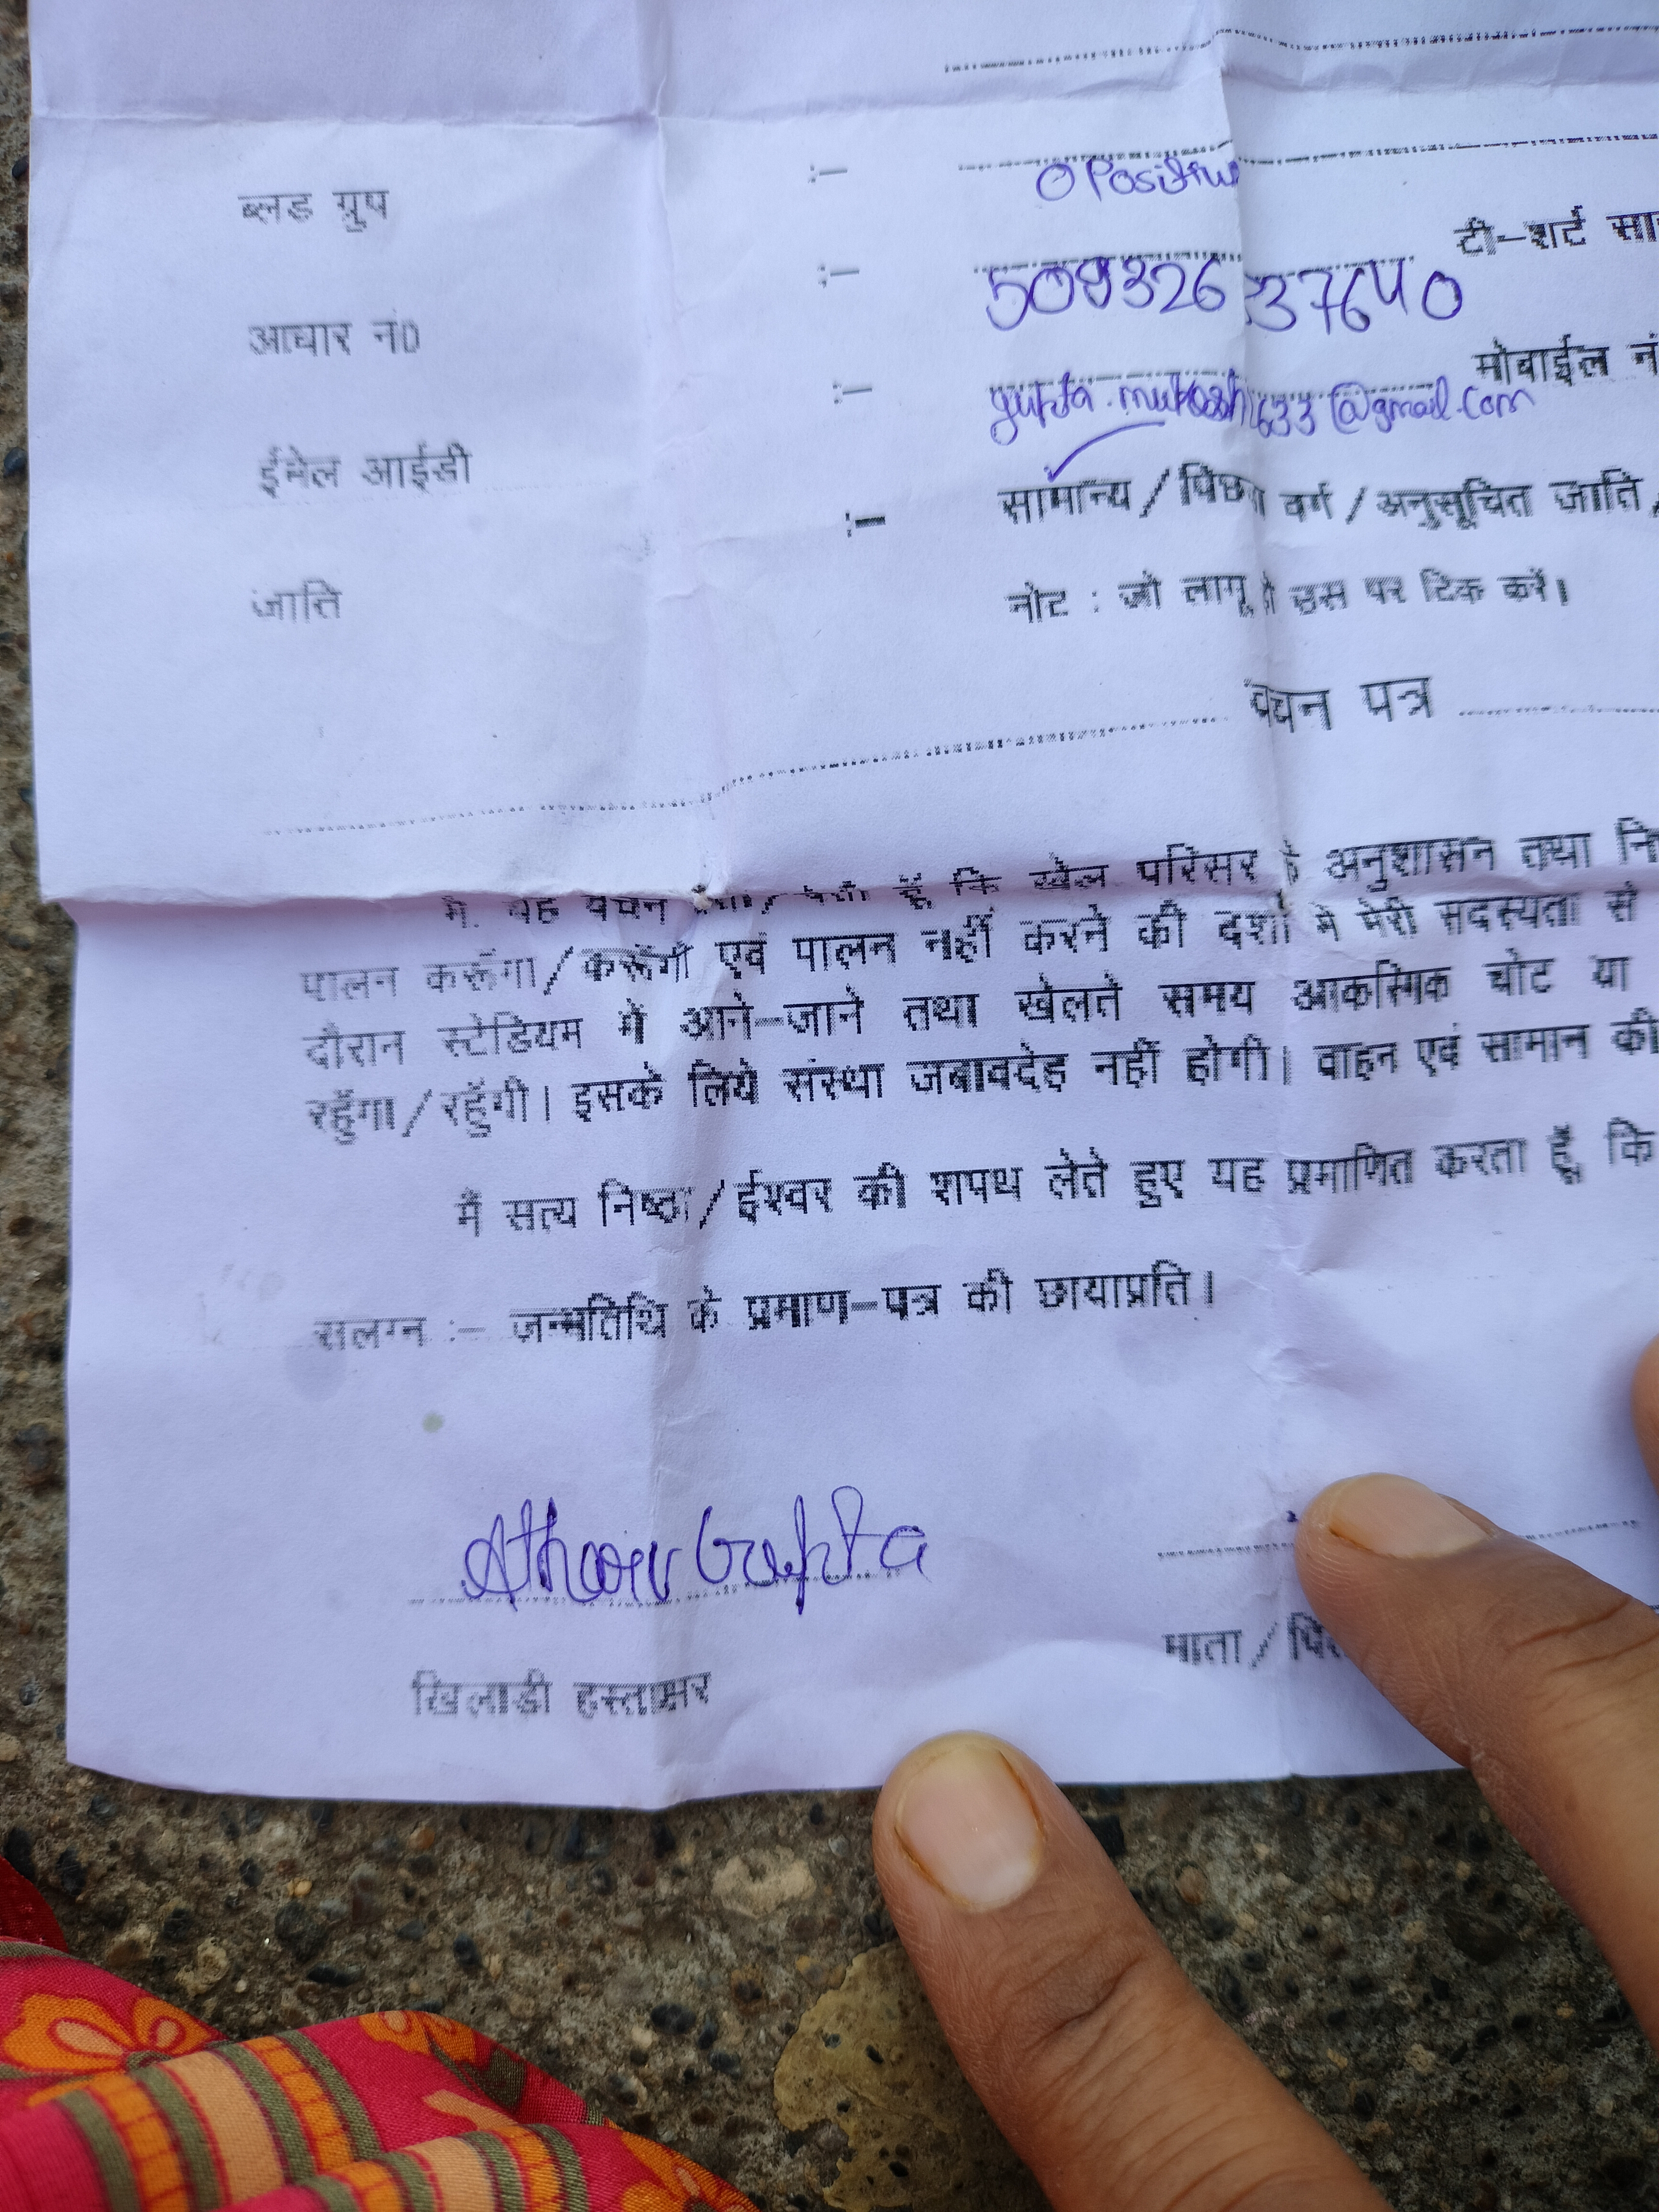 ब्लड ग्रुप :- O Positive
टी-शर्ट
आधार नं0 :- 509326 37640
मोबाईल नं
ईमेल आईडी :- gupta.mukesh1633@gmail.com
जाति :- सामान्य / पिछड़ा वर्ग / अनुसूचित जाति
नोट : जो लागू हो उस पर टिक करें।
वचन पत्र
मैं यह वचन देता/देती हूँ कि खेल परिसर के अनुशासन तथा
पालन करूँगा/करूँगी एवं पालन नहीं करने की दशा में मेरी सदस्यता से
दौरान स्टेडियम में आने-जाने तथा खेलते समय आकस्मिक चोट या
रहूँगा/रहूँगी। इसके लिये संस्था जबावदेह नहीं होगी। वाहन एवं सामान की
मैं सत्य निष्ठा/ईश्वर की शपथ लेते हुए यह प्रमाणित करता हूँ, कि
सलग्न :- जन्मतिथि के प्रमाण-पत्र की छायाप्रति।
Atharv Gupta
खिलाडी हस्ताक्षर
माता /